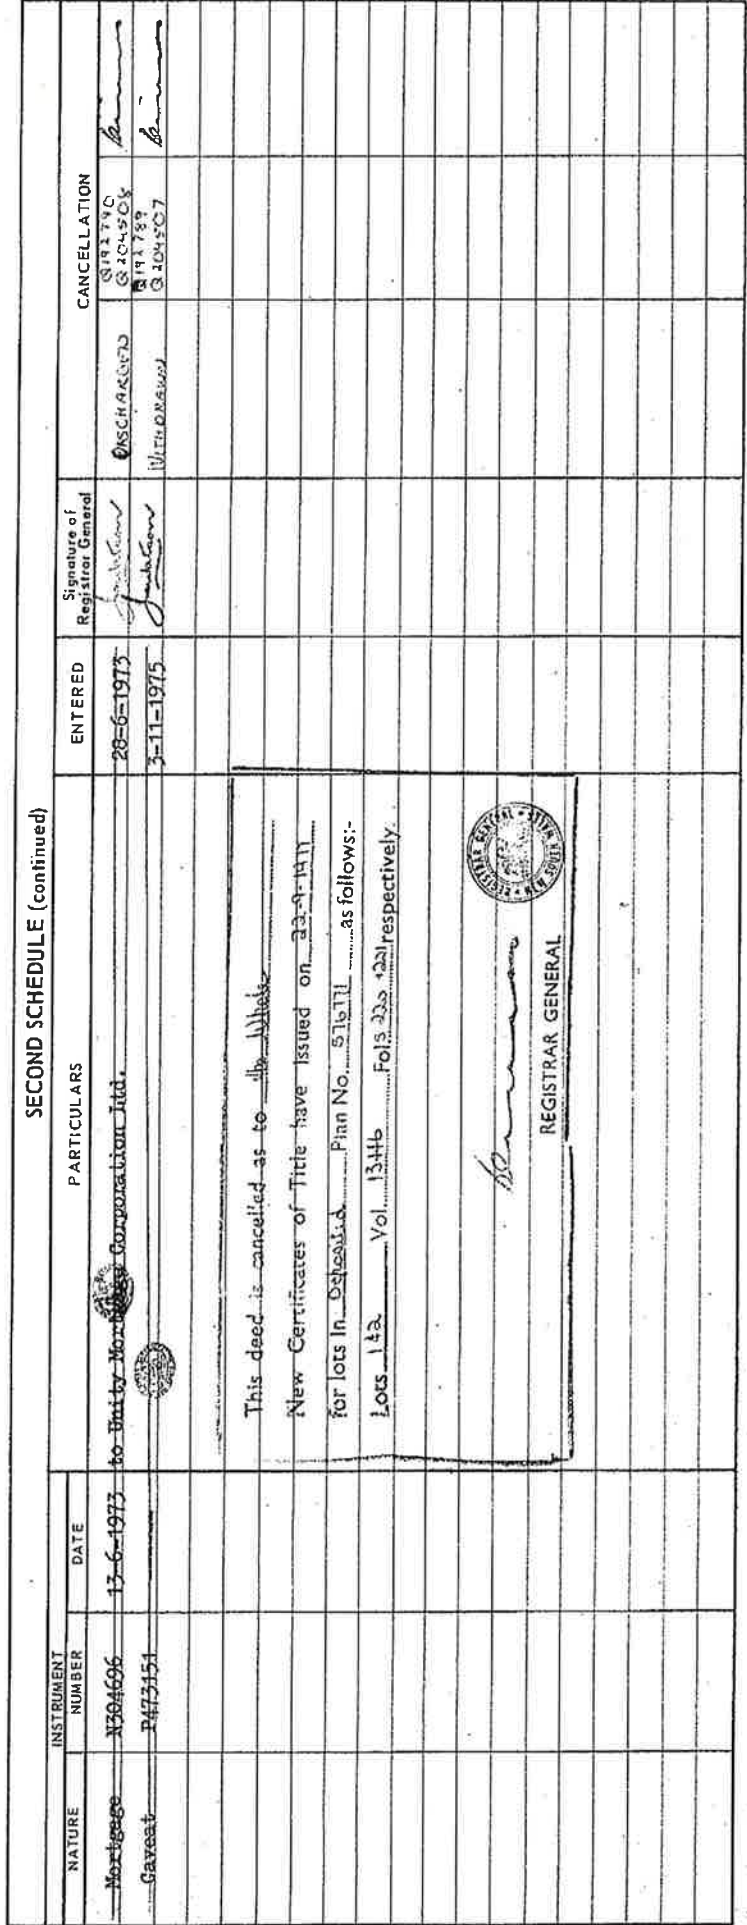 SECOND SCHEDULE (continued)
INSTRUMENT
NATURE NUMBER DATE PARTICULARS ENTERED Signature of Registrar General CANCELLATION
Mortgage N304696 13-6-1973 to Unity Mortgage Corporation Ltd. 28-6-1973 DISCHARGED Q192790 Q204508
Caveat P473151 3-11-1975 WITHDRAWN Q192789 Q204507
This deed is cancelled as to the Whole
New Certificates of Title have issued on 22-9-1977
for lots in Deposited Plan No. 576771 as follows:-
Lots 1 & 2 Vol. 13446 Fols 220 & 221 respectively.
REGISTRAR GENERAL
REGISTRAR GENERAL NEW SOUTH WALES